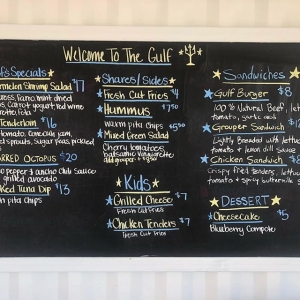 Welcome To The Gulf
Specials
Shrimp Salad 17
cress, Farro, mint dried
Carrot, yogurt, red wine
Tenderloin $16
tomato, Edamame jam,
sprouts, Sugar peas, pickled
Octopus $20
pepper & ancho Chili sauce
grilled avocado
Tuna Dip $13
Pita Chips
Shares/Sides
Fresh Cut Fries $4
Hummus $7.50
warm pita chips
Mixed Green Salad $5.50
Cherry tomatoes,
balsamic vinaigrette
add grouper
Kids
Grilled Cheese $7
Fresh Cut Fries
Chicken Tenders $7
Fresh Cut Fries
Sandwiches
Gulf Burger $8
100% Natural Beef, lett
tomato, garlic aioli
Grouper Sandwich $12
Lightly Breaded with lettuce
tomato & lemon dill sauce
Chicken Sandwich $8
Crispy fried tenders, lettuce
tomato & spicy buttermilk s
Dessert
Cheesecake $5
Blueberry Compote